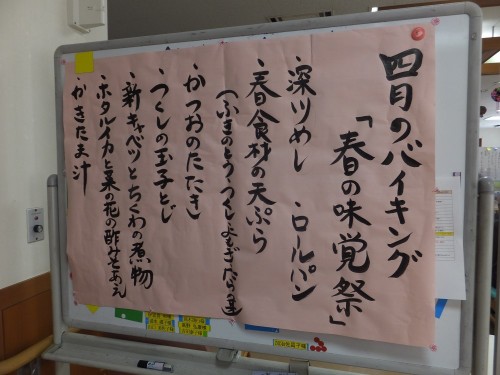 四月のバイキング
「春の味覚祭」
・深川めし ・ロールパン
・春食材の天ぷら
(ふきのとう・つくし・よもぎ・たらの芽)
・かつおのたたき
・つくしの玉子とじ
・新キャベツとちくわの煮物
・ホタルイカと菜の花の酢みそあえ
・かきたま汁